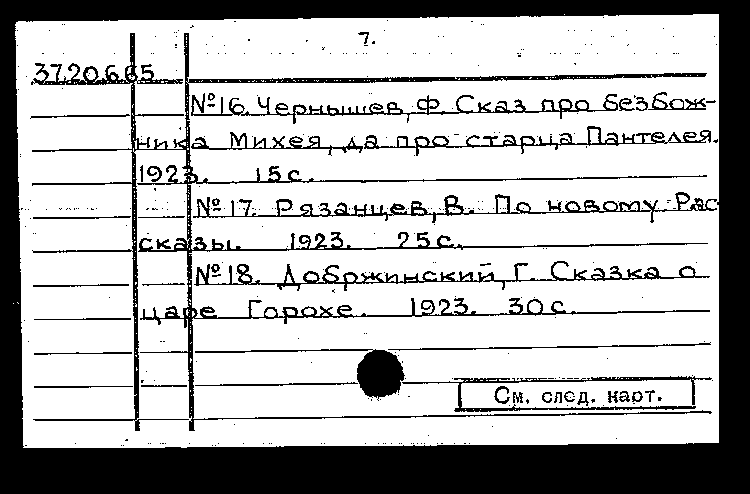 7.
37.20.6.65
№16. Чернышев, Ф. Сказ про безбож-
ника Михея, да про старца Пантелея.
1923. 15с.
№17. Рязанцев, В. По новому. Рас-
сказы. 1923. 25с.
№18. Добржинский, Г. Сказка о
царе Горохе. 1923. 30с.
См. след. карт.